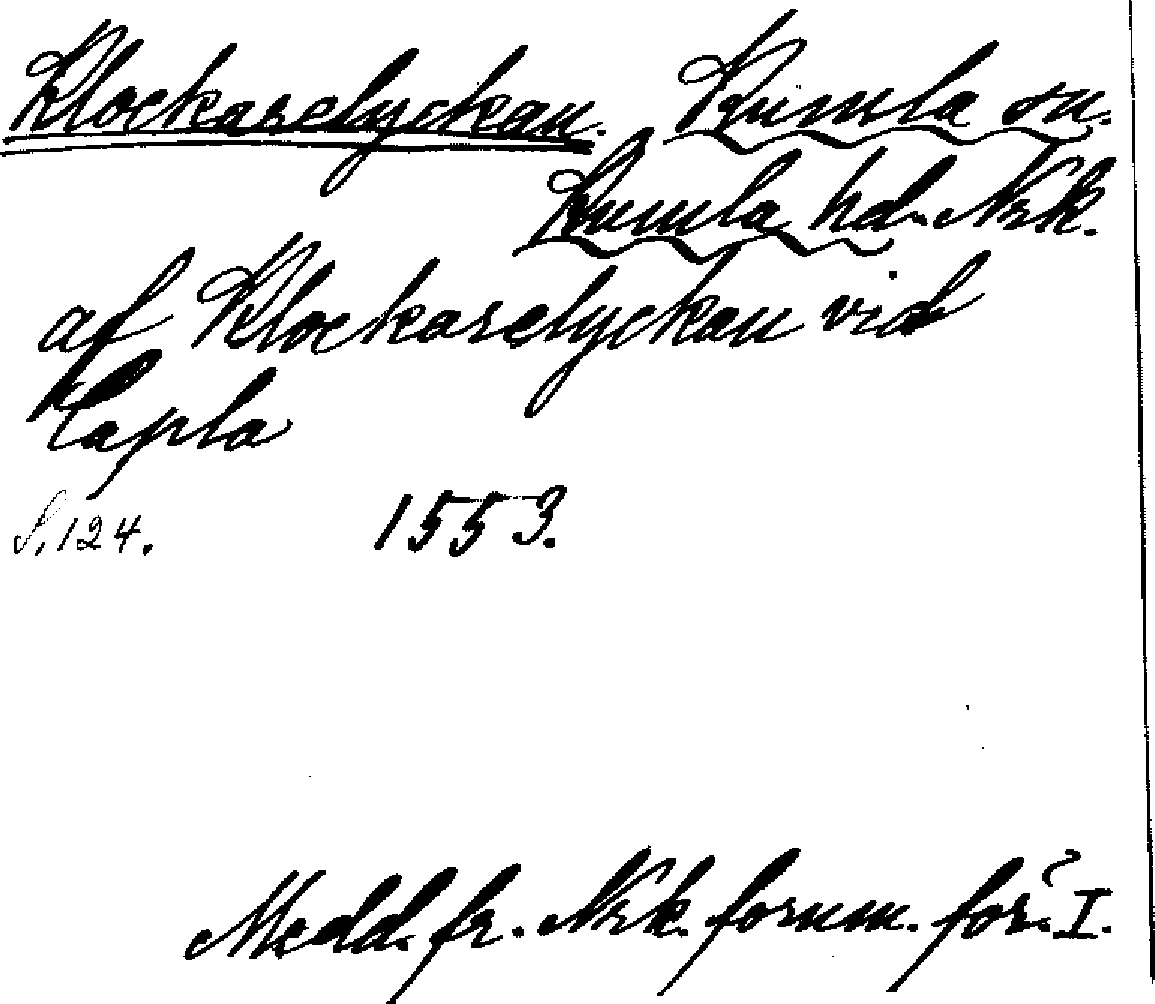 Klockarelyckan. Kumla sn.
Kumla hd. Nrk.
af Klockarelyckan vid
Tapla
S. 124. 1553.
Medd. fr. Nrk. fornm. för. I.